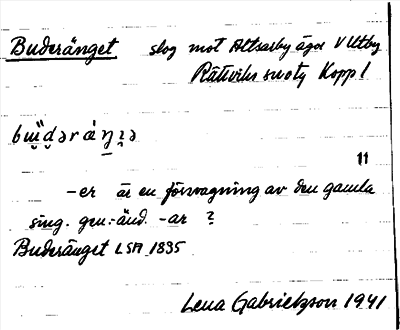 Buderänget skog mot Altsarby ägor V Utby
Rättviks sn o tg Kopp l
11
-er är en försvagning av den gamla
sing. gen.-änd. -ar ?
Buderänget LSA 1835
Lena Gabrielsson 1941